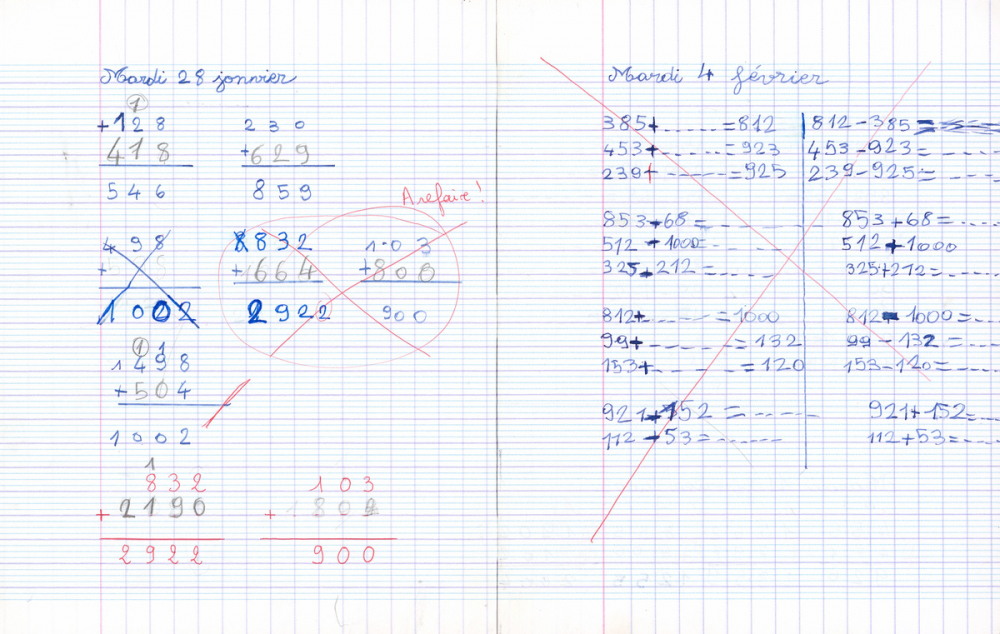 Mardi 28 jonnvier
1
+128 230
418 +629
546 859
A refaire !
498 8832 103
+ +664 +800
1002 2922 900
1 1
1498
+504
1002
1
832 103
+2190 + 1802
2922 900
Mardi 4 février
385+.......=812
453+.......=923
239+.......=925
853+68=.......
512+1000=.......
325+212=.......
812+.......=1000
99+.......=132
153+.......=120
921+152=.......
112+53=.......
812-385=
453-923=.......
239-925=.......
853+68=.......
512+1000
325+212=.......
812-1000=.......
99-132=.......
153-120=.......
921+152=.......
112+53=.......